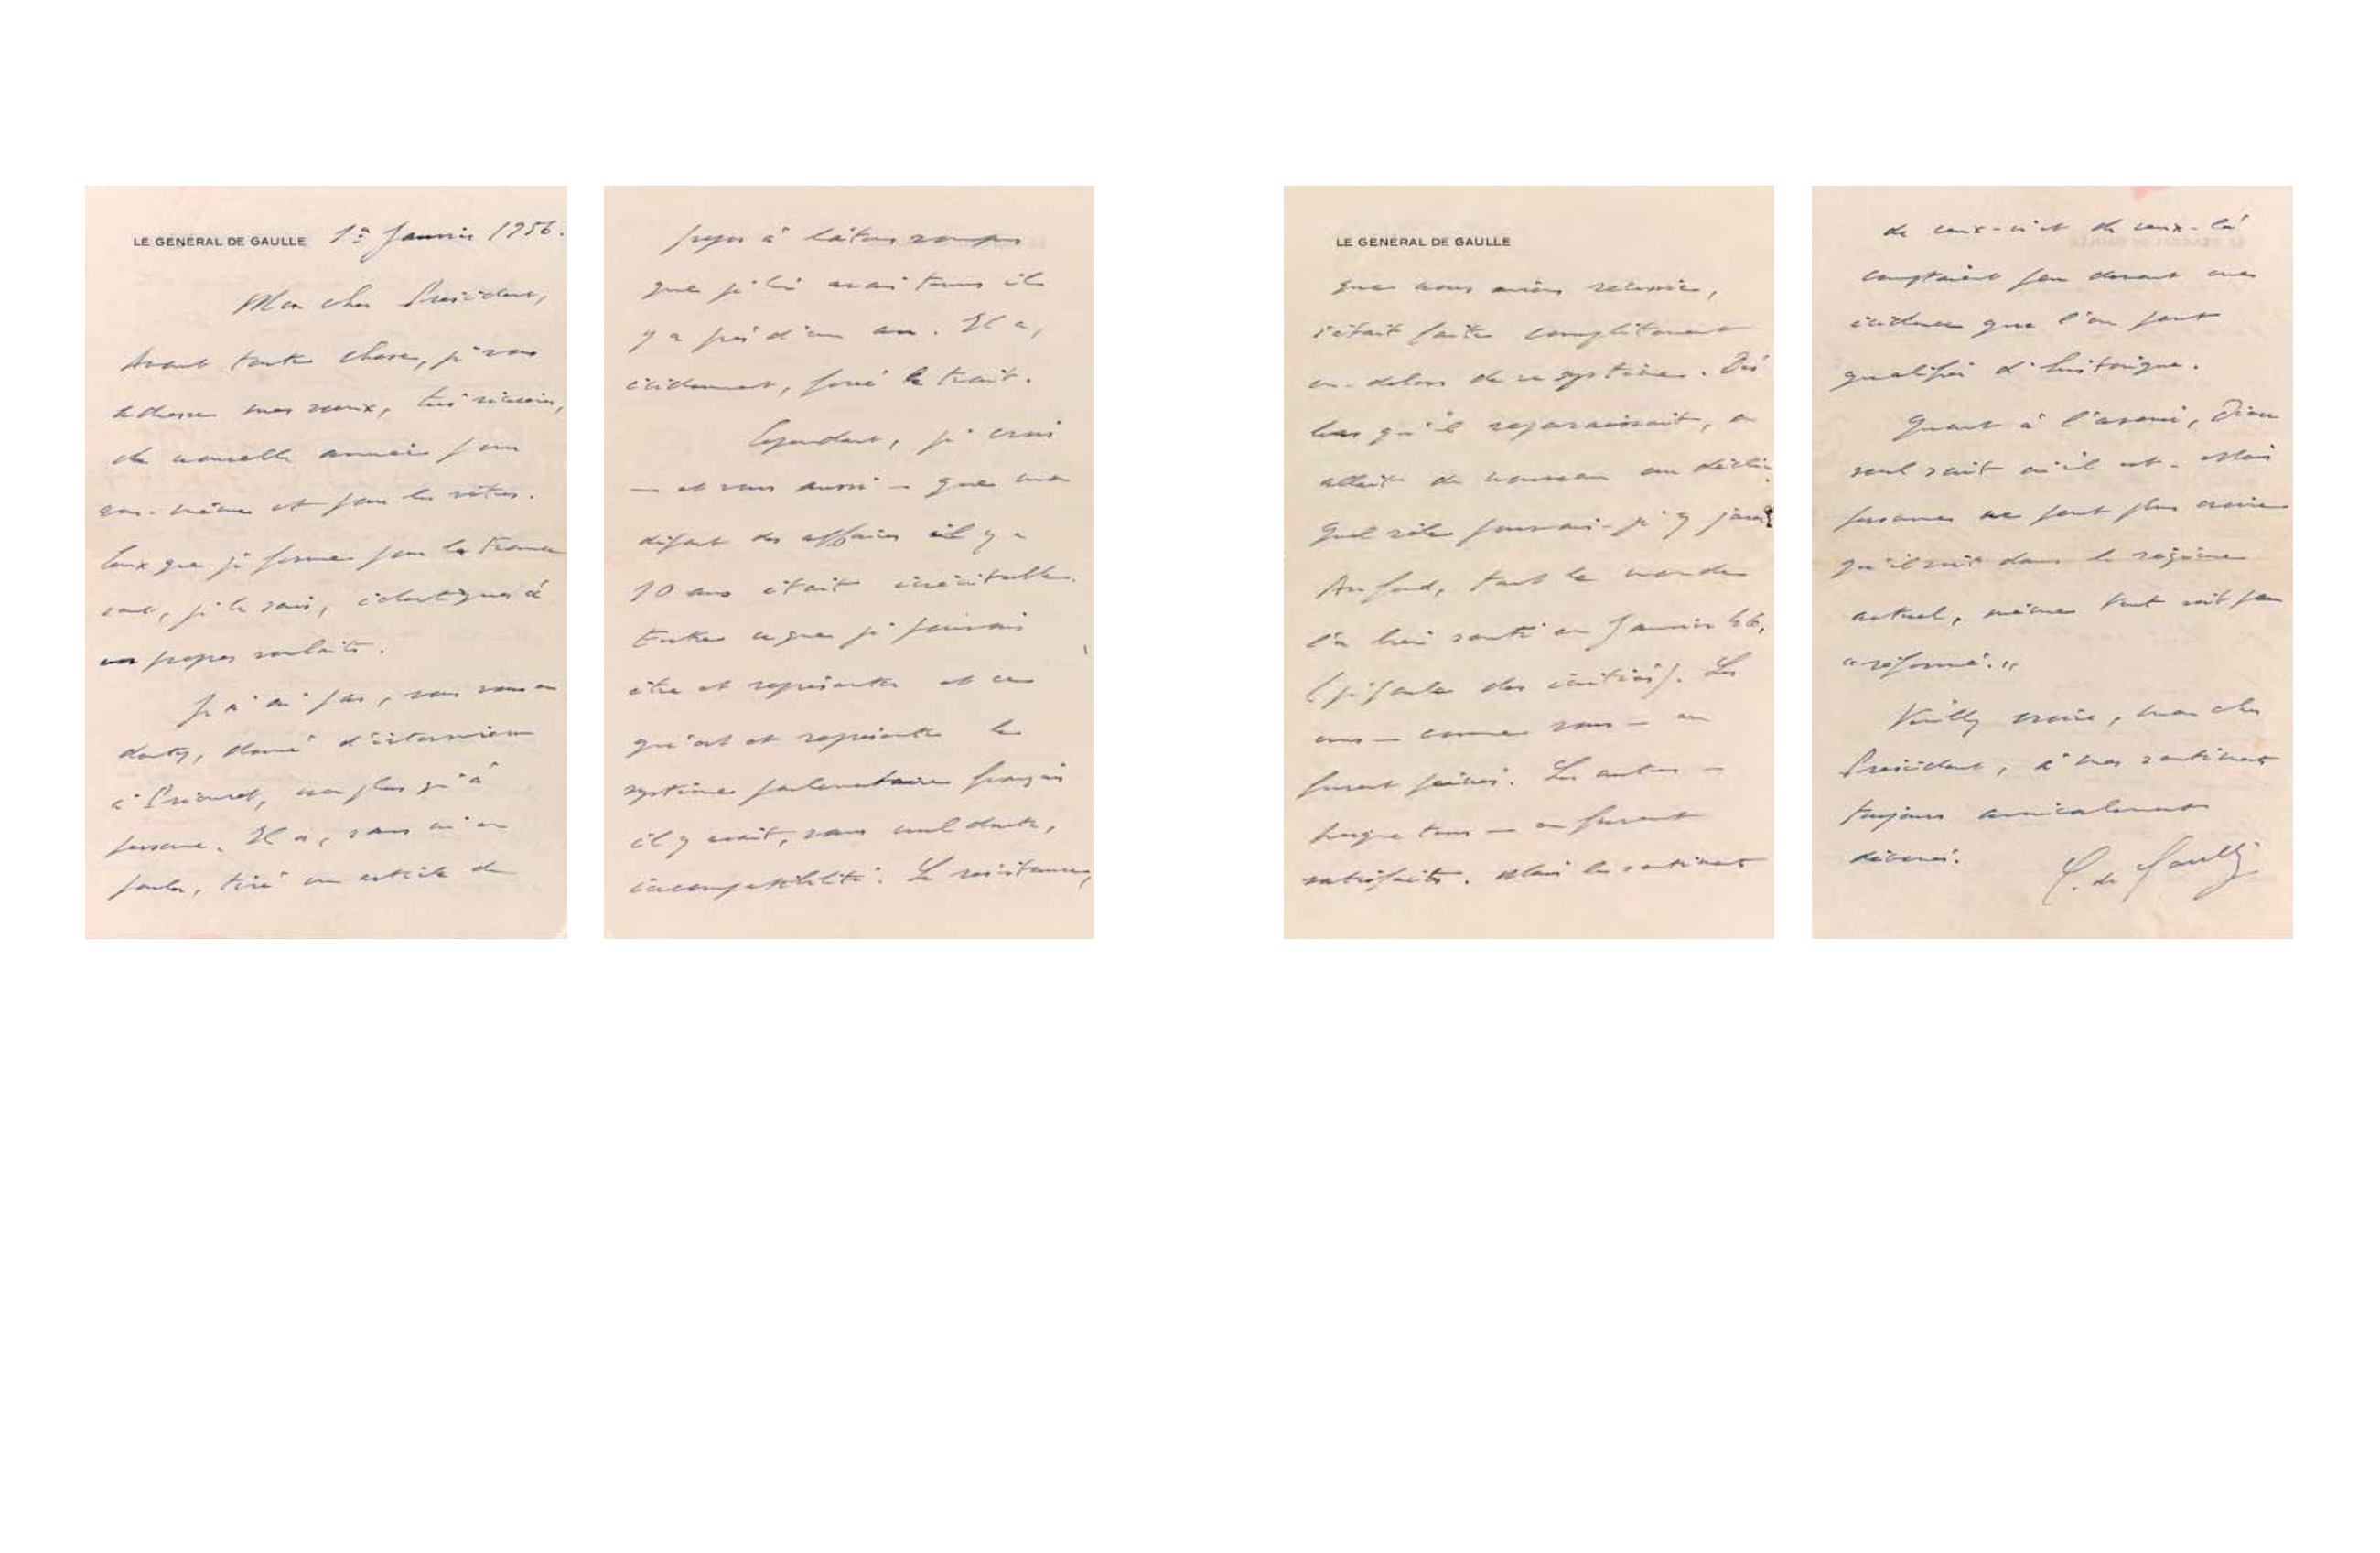 LE GENERAL DE GAULLE 1er Janvier 1956.
Mon cher Président,
Avant toute chose, je vous
adresse mes voeux, très sincères,
de nouvelle année pour
vous-même et pour les vôtres.
Ceux que je forme pour la France
sont, je le sais, identiques à
vos propres souhaits.
Je n'ai pas, vous vous en
doutez, donné d'interview
à Priouret, non plus qu'à
personne. Il a, sans m'en
parler, tiré un article de
propos à bâtons rompus
que je lui avais tenus il
y a près d'un an. Il a,
évidemment, forcé le trait.
Cependant, je crois
— et vous aussi — que mon
départ des affaires il y a
10 ans était inévitable.
Entre ce que je pouvais
être et représenter et ce
qu'est et représente le
système parlementaire français
il y avait, sans nul doute,
incompatibilité. La résistance,
LE GENERAL DE GAULLE
que nous avions relevée,
s'était faite complètement
en-dehors de ce système. Dès
lors qu'il reparaissait, on
allait de nouveau au déclin.
Quel rôle pouvais-je y jouer?
Au fond, tout le monde
l'a bien senti en Janvier 46,
(je parle des initiés). Les
uns — comme vous — en
furent peinés. Les autres —
presque tous — en furent
satisfaits. Mais les sentiments
de ceux-ci et de ceux-là
comptaient peu devant une
évidence que l'on peut
qualifier d'historique.
Quant à l'avenir, Dieu
seul sait où il est. Mais
personne ne peut plus croire
qu'il soit dans le régime
actuel, même tant soit peu
"réformé."
Veuillez croire, mon cher
Président, à mes sentiments
toujours amicalement
dévoués.
C. de Gaulle